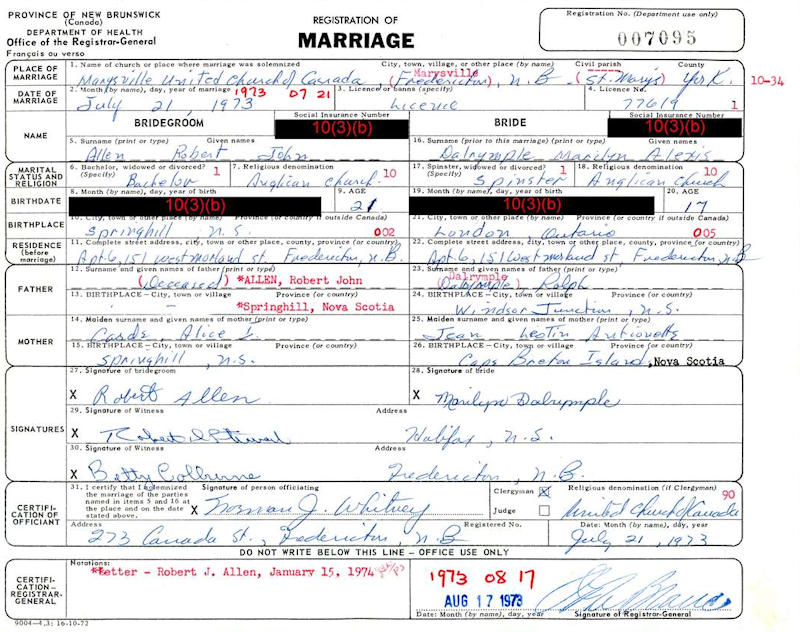 PROVINCE OF NEW BRUNSWICK
(Canada)
DEPARTMENT OF HEALTH
Office of the Registrar-General
Français au verso
REGISTRATION OF
MARRIAGE
Registration No. (Department use only)
007095
PLACE OF MARRIAGE
1. Name of church or place where marriage was solemnized City, town, village, or other place (by name) Civil parish County
Marysville United Church of Canada (Fredericton), N.B. Marysville (St. Marys) York 10-34
DATE OF MARRIAGE
2. Month (by name), day, year of marriage 1973 07 21 3. Licence or banns (specify) 4. Licence No.
July 21, 1973 Licence 77619 1
NAME
BRIDEGROOM Social Insurance Number 10(3)(b)
BRIDE Social Insurance Number 10(3)(b)
5. Surname (print or type) Given names
Allen Robert John
16. Surname (prior to this marriage) (print or type) Given names
Dalrymple Marilyn Alexis
MARITAL STATUS AND RELIGION
6. Bachelor, widowed or divorced? (Specify) 1 7. Religious denomination
Bachelor Anglican church. 10
17. Spinster, widowed or divorced? (Specify) 1 18. Religious denomination
Spinster Anglican Church 10
BIRTHDATE
8. Month (by name), day, year of birth 9. AGE
10(3)(b) 21
19. Month (by name), day, year of birth 20. AGE
10(3)(b) 17
BIRTHPLACE
10. City, town or other place (by name) Province (or country if outside Canada)
Springhill, N.S. 002
21. City, town or other place (by name) Province (or country if outside Canada)
London, Ontario 005
RESIDENCE (before marriage)
11. Complete street address, city, town or other place, county, province (or country)
Apt. 6, 151 Westmorland St, Fredericton, N.B.
22. Complete street address, city, town or other place, county, province (or country)
Apt. 6, 151 Westmorland St, Fredericton, N.B
FATHER
12. Surname and given names of father (print or type)
(Deceased) *ALLEN, Robert John
23. Surname and given names of father (print or type)
Dalrymple
(Dalrymple) Ralph
13. BIRTHPLACE - City, town or village Province (or country)
- *Springhill, Nova Scotia
24. BIRTHPLACE - City, town or village Province (or country)
Windsor Junction, N.S.
MOTHER
14. Maiden surname and given names of mother (print or type)
Alice
25. Maiden surname and given names of mother (print or type)
Jean
15. BIRTHPLACE - City, town or village Province (or country)
Springhill, N.S.
26. BIRTHPLACE - City, town or village Province (or country)
Cape Breton Island, Nova Scotia
SIGNATURES
27. Signature of bridegroom
X Robert Allen
28. Signature of bride
X Marilyn Dalrymple
29. Signature of Witness Address
X Robert Halifax, N.S.
30. Signature of Witness Address
X Betty Colburne Fredericton, N.B.
CERTIFICATION OF OFFICIANT
31. I certify that I solemnized the marriage of the parties named in items 5 and 16 at the place and on the date stated above.
Signature of person officiating
X Norman J. Whitney
Clergyman ☒
Judge ☐
Religious denomination (if Clergyman)
United Church of Canada 90
Address Registered No. Date: Month (by name), day, year
273 Canada St., Fredericton, N.B July 21, 1973
DO NOT WRITE BELOW THIS LINE - OFFICE USE ONLY
CERTIFICATION- REGISTRAR-GENERAL
Notations:
*Letter - Robert J. Allen, January 15, 1974
1973 08 17
AUG 17 1973
Date: Month (by name), day, year Signature of Registrar-General
9004-4.3; 16-10-72